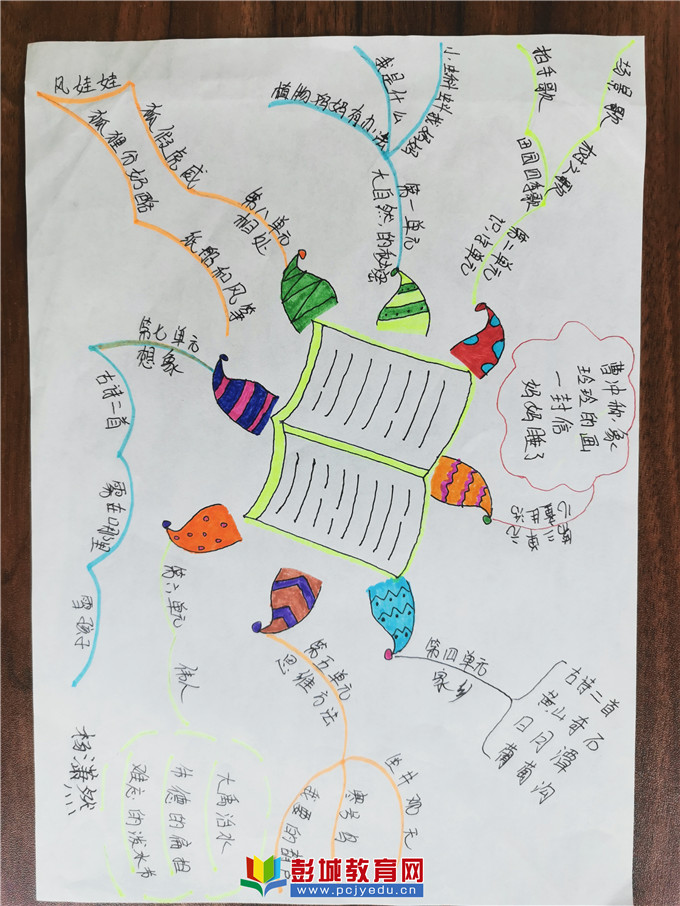 第一单元
大自然的秘密
小蝌蚪找妈妈
我是什么
植物妈妈有办法
第二单元
识字单元
场景歌
树之歌
拍手歌
田园四季歌
曹冲称象
玲玲的画
一封信
妈妈睡了
第四单元
家乡
古诗二首
黄山奇石
日月潭
葡萄沟
第五单元
思维方法
坐井观天
寒号鸟
我要的葫芦
第六单元
伟人
大禹治水
朱德的扁担
难忘的泼水节
第七单元
想象
古诗二首
雾在哪里
雪孩子
第八单元
相处
狐假虎威
狐狸分奶酪
纸船和风筝
风娃娃
杨潇然
彭城教育网
www.pcjyedu.cn